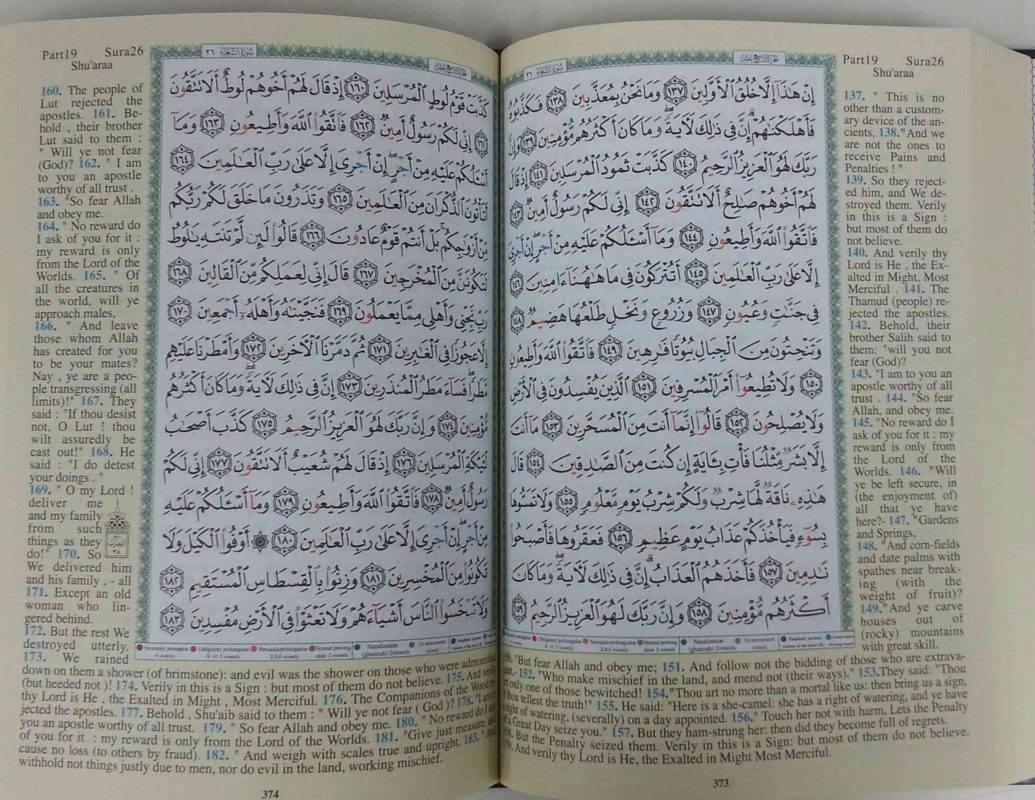 Part19 Sura26
Shu'araa
إِنْ هَٰذَا إِلَّا خُلُقُ الْأَوَّلِينَ ١٣٧ وَمَا نَحْنُ بِمُعَذَّبِينَ ١٣٨ فَكَذَّبُوهُ
فَأَهْلَكْنَاهُمْ إِنَّ فِي ذَٰلِكَ لَآيَةً وَمَا كَانَ أَكْثَرُهُم مُّؤْمِنِينَ ١٣٩ وَإِنَّ
رَبَّكَ لَهُوَ الْعَزِيزُ الرَّحِيمُ ١٤٠ كَذَّبَتْ ثَمُودُ الْمُرْسَلِينَ ١٤١ إِذْ قَالَ
لَهُمْ أَخُوهُمْ صَالِحٌ أَلَا تَتَّقُونَ ١٤٢ إِنِّي لَكُمْ رَسُولٌ أَمِينٌ ١٤٣
فَاتَّقُوا اللَّهَ وَأَطِيعُونِ ١٤٤ وَمَا أَسْأَلُكُمْ عَلَيْهِ مِنْ أَجْرٍ إِنْ أَجْرِيَ
إِلَّا عَلَىٰ رَبِّ الْعَالَمِينَ ١٤٥ أَتُتْرَكُونَ فِي مَا هَاهُنَا آمِنِينَ ١٤٦
فِي جَنَّاتٍ وَعُيُونٍ ١٤٧ وَزُرُوعٍ وَنَخْلٍ طَلْعُهَا هَضِيمٌ ١٤٨
وَتَنْحِتُونَ مِنَ الْجِبَالِ بُيُوتًا فَارِهِينَ ١٤٩ فَاتَّقُوا اللَّهَ وَأَطِيعُونِ
١٥٠ وَلَا تُطِيعُوا أَمْرَ الْمُسْرِفِينَ ١٥١ الَّذِينَ يُفْسِدُونَ فِي الْأَرْضِ
وَلَا يُصْلِحُونَ ١٥٢ قَالُوا إِنَّمَا أَنتَ مِنَ الْمُسَحَّرِينَ ١٥٣ مَا أَنتَ
إِلَّا بَشَرٌ مِّثْلُنَا فَأْتِ بِآيَةٍ إِن كُنتَ مِنَ الصَّادِقِينَ ١٥٤ قَالَ
هَٰذِهِ نَاقَةٌ لَّهَا شِرْبٌ وَلَكُمْ شِرْبُ يَوْمٍ مَّعْلُومٍ ١٥٥ وَلَا تَمَسُّوهَا
بِسُوءٍ فَيَأْخُذَكُمْ عَذَابُ يَوْمٍ عَظِيمٍ ١٥٦ فَعَقَرُوهَا فَأَصْبَحُوا
نَادِمِينَ ١٥٧ فَأَخَذَهُمُ الْعَذَابُ إِنَّ فِي ذَٰلِكَ لَآيَةً وَمَا كَانَ
أَكْثَرُهُم مُّؤْمِنِينَ ١٥٨ وَإِنَّ رَبَّكَ لَهُوَ الْعَزِيزُ الرَّحِيمُ ١٥٩
137. " This is no
other than a custom-
ary device of the an-
cients, 138."And we
are not the ones to
receive Pains and
Penalties ! "
139. So they reject-
ed him, and We de-
stroyed them. Verily
in this is a Sign :
but most of them do
not believe.
140. And verily thy
Lord is He , the Ex-
alted in Might, Most
Merciful . 141. The
Thamud (people) re-
jected the apostles.
142. Behold, their
brother Salih said to
them: "will you not
fear (God)?
143. "I am to you an
apostle worthy of all
trust . 144. "So fear
Allah, and obey me.
145. "No reward do I
ask of you for it : my
reward is only from
the Lord of the
Worlds. 146. "Will
ye be left secure, in
(the enjoyment of)
all that ye have
here?- 147. "Gardens
and Springs,
148. "And corn-fields
and date palms with
spathes near break-
ing (with the
weight of fruit)?
149."And ye carve
houses out of
(rocky) mountains
with great skill.
150. "But fear Allah and obey me; 151. And follow not the bidding of those who are extrava-
152. "Who make mischief in the land, and mend not (their ways)." 153.They said: "Thou
only one of those bewitched! 154."Thou art no more than a mortal like us: then bring us a sign,
tellest the truth!" 155. He said: "Here is a she-camel: she has a right of watering, and ye have
right of watering, (severally) on a day appointed. 156." Touch her not with harm, Lets the Penalty
of a Great Day seize you." 157. But they ham-strung her: then did they become full of regrets.
158. But the Penalty seized them. Verily in this is a Sign: but most of them do not believe.
159. And verily thy Lord is He, the Exalted in Might Most Merciful.
373
Part19 Sura26
Shu'araa
سورة الشعراء ٢٦
كَذَّبَتْ قَوْمُ لُوطٍ الْمُرْسَلِينَ ١٦٠ إِذْ قَالَ لَهُمْ أَخُوهُمْ لُوطٌ أَلَا تَتَّقُونَ
١٦١ إِنِّي لَكُمْ رَسُولٌ أَمِينٌ ١٦٢ فَاتَّقُوا اللَّهَ وَأَطِيعُونِ ١٦٣ وَمَا
أَسْأَلُكُمْ عَلَيْهِ مِنْ أَجْرٍ إِنْ أَجْرِيَ إِلَّا عَلَىٰ رَبِّ الْعَالَمِينَ ١٦٤
أَتَأْتُونَ الذُّكْرَانَ مِنَ الْعَالَمِينَ ١٦٥ وَتَذَرُونَ مَا خَلَقَ لَكُمْ رَبُّكُم
مِّنْ أَزْوَاجِكُم بَلْ أَنتُمْ قَوْمٌ عَادُونَ ١٦٦ قَالُوا لَئِن لَّمْ تَنتَهِ يَا لُوطُ
لَتَكُونَنَّ مِنَ الْمُخْرَجِينَ ١٦٧ قَالَ إِنِّي لِعَمَلِكُم مِّنَ الْقَالِينَ ١٦٨
رَبِّ نَجِّنِي وَأَهْلِي مِمَّا يَعْمَلُونَ ١٦٩ فَنَجَّيْنَاهُ وَأَهْلَهُ أَجْمَعِينَ ١٧٠
إِلَّا عَجُوزًا فِي الْغَابِرِينَ ١٧١ ثُمَّ دَمَّرْنَا الْآخَرِينَ ١٧٢ وَأَمْطَرْنَا عَلَيْهِم
مَّطَرًا فَسَاءَ مَطَرُ الْمُنذَرِينَ ١٧٣ إِنَّ فِي ذَٰلِكَ لَآيَةً وَمَا كَانَ أَكْثَرُهُم
مُّؤْمِنِينَ ١٧٤ وَإِنَّ رَبَّكَ لَهُوَ الْعَزِيزُ الرَّحِيمُ ١٧٥ كَذَّبَ أَصْحَابُ
لْئَيْكَةِ الْمُرْسَلِينَ ١٧٦ إِذْ قَالَ لَهُمْ شُعَيْبٌ أَلَا تَتَّقُونَ ١٧٧ إِنِّي لَكُمْ
رَسُولٌ أَمِينٌ ١٧٨ فَاتَّقُوا اللَّهَ وَأَطِيعُونِ ١٧٩ وَمَا أَسْأَلُكُمْ عَلَيْهِ
مِنْ أَجْرٍ إِنْ أَجْرِيَ إِلَّا عَلَىٰ رَبِّ الْعَالَمِينَ ١٨٠ أَوْفُوا الْكَيْلَ وَلَا
تَكُونُوا مِنَ الْمُخْسِرِينَ ١٨١ وَزِنُوا بِالْقِسْطَاسِ الْمُسْتَقِيمِ ١٨٢
وَلَا تَبْخَسُوا النَّاسَ أَشْيَاءَهُمْ وَلَا تَعْثَوْا فِي الْأَرْضِ مُفْسِدِينَ ١٨٣
160. The people of
Lut rejected the
apostles. 161. Be-
hold , their brother
Lut said to them :
" Will ye not fear
(God)? 162. " I am
to you an apostle
worthy of all trust .
163. "So fear Allah
and obey me.
164. " No reward do
I ask of you for it :
my reward is only
from the Lord of the
Worlds. 165. " Of
all the creatures in
the world, will ye
approach males,
166. " And leave
those whom Allah
has created for you
to be your mates?
Nay , ye are a peo-
ple transgressing (all
limits)!" 167. They
said : "If thou desist
not, O Lut ! thou
wilt assuredly be
cast out!" 168. He
said : "I do detest
your doings . "
169. " O my Lord !
deliver me
and my family
from such
things as they
do!" 170. So
We delivered him
and his family , - all
171. Except an old
woman who lin-
gered behind.
172. But the rest We
destroyed utterly.
173. We rained
down on them a shower (of brimstone): and evil was the shower on those who were admonished
(but heeded not )! 174. Verily in this is a Sign : but most of them do not believe. 175. And verily
thy Lord is He , the Exalted in Might , Most Merciful. 176. The Companions of the Wood re-
jected the apostles. 177. Behold , Shu'aib said to them : " Will ye not fear ( God )? 178. "I am to
you an apostle worthy of all trust. 179. " So fear Allah and obey me. 180. " No reward do I ask
of you for it : my reward is only from the Lord of the Worlds. 181. "Give just measure, and
cause no loss (to others by fraud). 182. " And weigh with scales true and upright. 183. " And
withhold not things justly due to men, nor do evil in the land, working mischief.
374